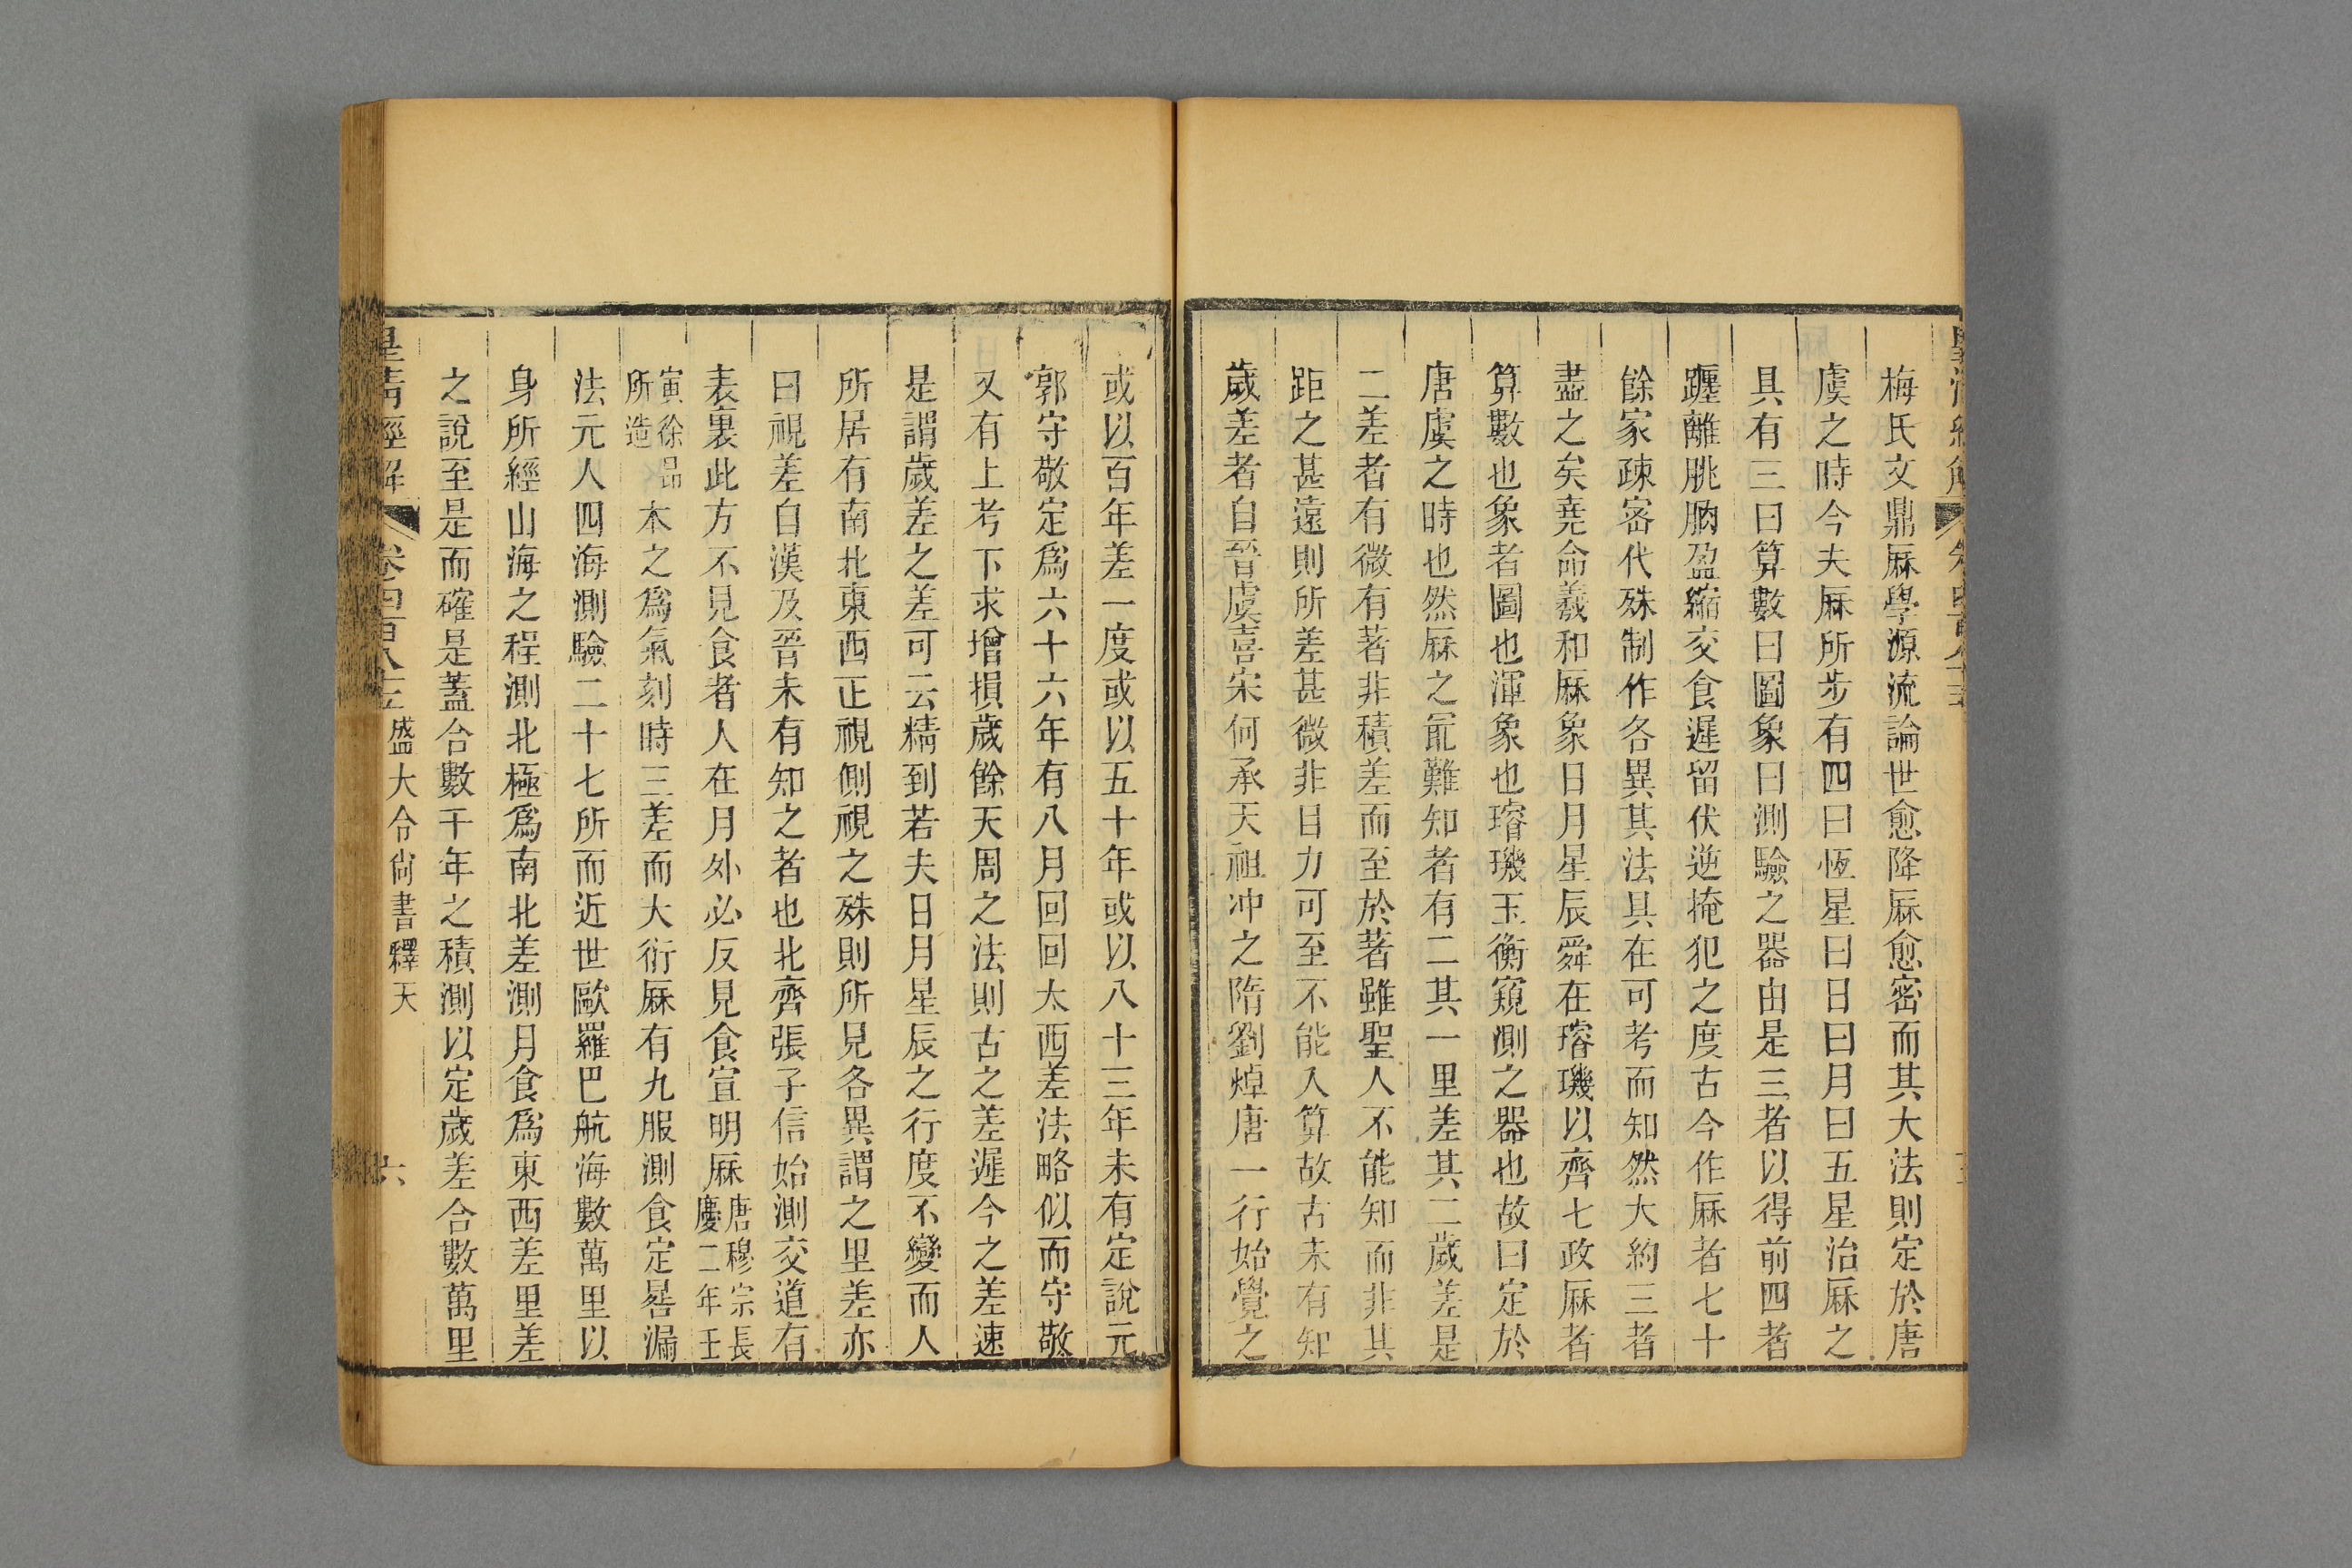 梅氏文鼎厤學源流論世愈降厤愈密而其大法則定於唐
虞之時今夫厤所步有四曰恆星曰日曰月曰五星治厤之
具有三曰算數曰圖象曰測驗之器由是三者以得前四者
躔離朓朒盈縮交食遲留伏逆掩犯之度古今作厤者七十
餘家疎密代殊制作各異其法具在可考而知然大約三者
盡之矣堯命羲和厤象日月星辰舜在璿璣以齊七政厤者
算數也象者圖也渾象也璿璣玉衡窺測之器也故曰定於
唐虞之時也然厤之冣難知者有二其一里差其二歲差是
二差者有微有著非積差而至於著雖聖人不能知而非其
距之甚遠則所差甚微非目力可至不能入算故古未有知
歲差者自晉虞喜宋何承天祖冲之隋劉焯唐一行始覺之
或以百年差一度或以五十年或以八十三年未有定說元
郭守敬定爲六十六年有八月回回太西差法略似而守敬
又有上考下求增損歲餘天周之法則古之差遲今之差速
是謂歲差之差可云精到若夫日月星辰之行度不變而人
所居有南北東西正視側視之殊則所見各異謂之里差亦
曰視差自漢及晉未有知之者也北齊張子信始測交道有
表裏此方不見食者人在月外必反見食宣明厤唐穆宗長慶二年壬
寅徐昂所造本之爲氣刻時三差而大衍厤有九服測食定晷漏
法元人四海測驗二十七所而近世歐羅巴航海數萬里以
身所經山海之程測北極爲南北差測月食爲東西差里差
之說至是而確是蓋合數千年之積測以定歲差合數萬里
皇清經解 卷四百八十五 盛大令尙書釋天 六